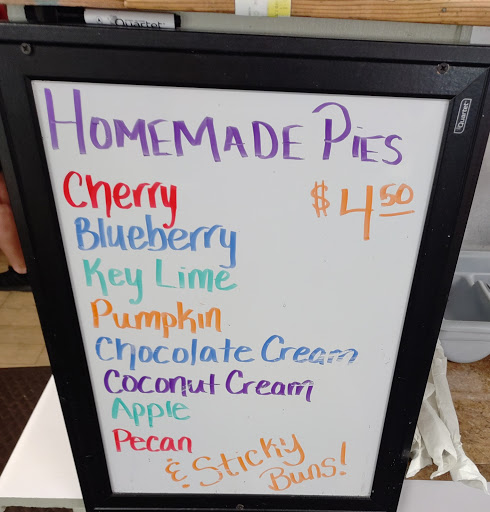 Quartet
Quartet
HOMEMADE PIES
$4.50
Cherry
Blueberry
Key Lime
Pumpkin
Chocolate Cream
Coconut Cream
Apple
Pecan
& Sticky
Buns!